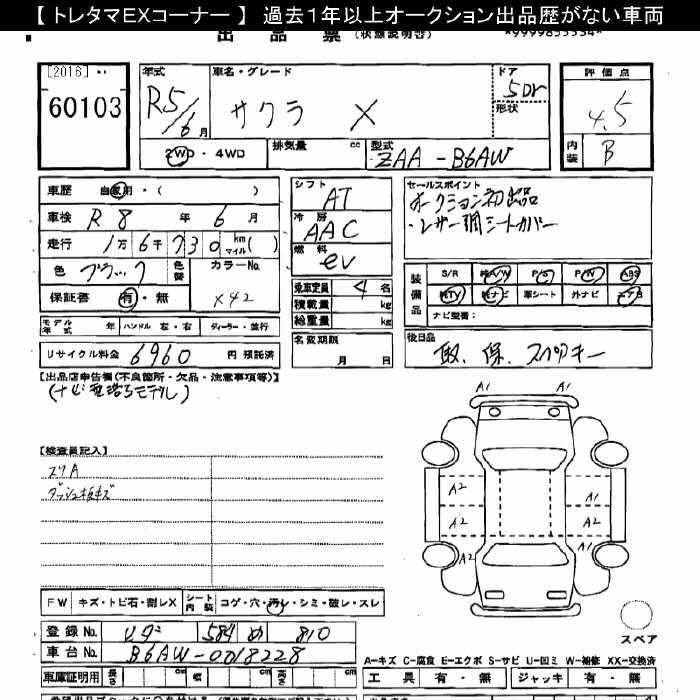 【 トレタマEXコーナー 】 過去1年以上オークション出品歴がない車両
出 品 票 (状態説明書) *9999855534*
[2016]
60103
年式 R5/6月
車名・グレード サクラ X
ドア 5Dr
形状
評価点 4.5
内装 B
2WD・4WD
排気量 cc
型式 ZAA-B6AW
車歴 自家用・( )
車検 R8年 6月
走行 1万6千730 km マイル( )
色 ブラック 色替 カラーNo. X42
保証書 有・無
モデル年式 年 ハンドル 左・右 ディーラー・並行
リサイクル料金 6960 円 預託済
シフト AT
冷房 AAC
燃料 eV
乗車定員 4 名
積載量 kg
総重量 kg
名変期限 月 日
セールスポイント
オークション初出品
・レザー調シートカバー
装備品 S/R 純A/W P/S P/W ABS
純TV 純ナビ 革シート 外ナビ エアB
ナビ型番:
後日品
取、保、スペアキー
【出品店申告欄(不良箇所・欠品・注意事項等)】
【検査員記入】
スリA
ダッシュ板キズ
A1 A1
A2 A1
A2 A2
A2 A2
スペア
FW キズ・トビ石・割レX シート内装 コゲ・穴・汚レ・シミ・破レ・スレ
登録No. 584 め 810
車台No. B6AW-0018228
A-キズ C-腐食 E-エクボ S-サビ U-凹ミ W-補修 XX-交換済
車庫証明用 長さ cm 幅 cm 高さ cm
工具 有・無 ジャッキ 有・無